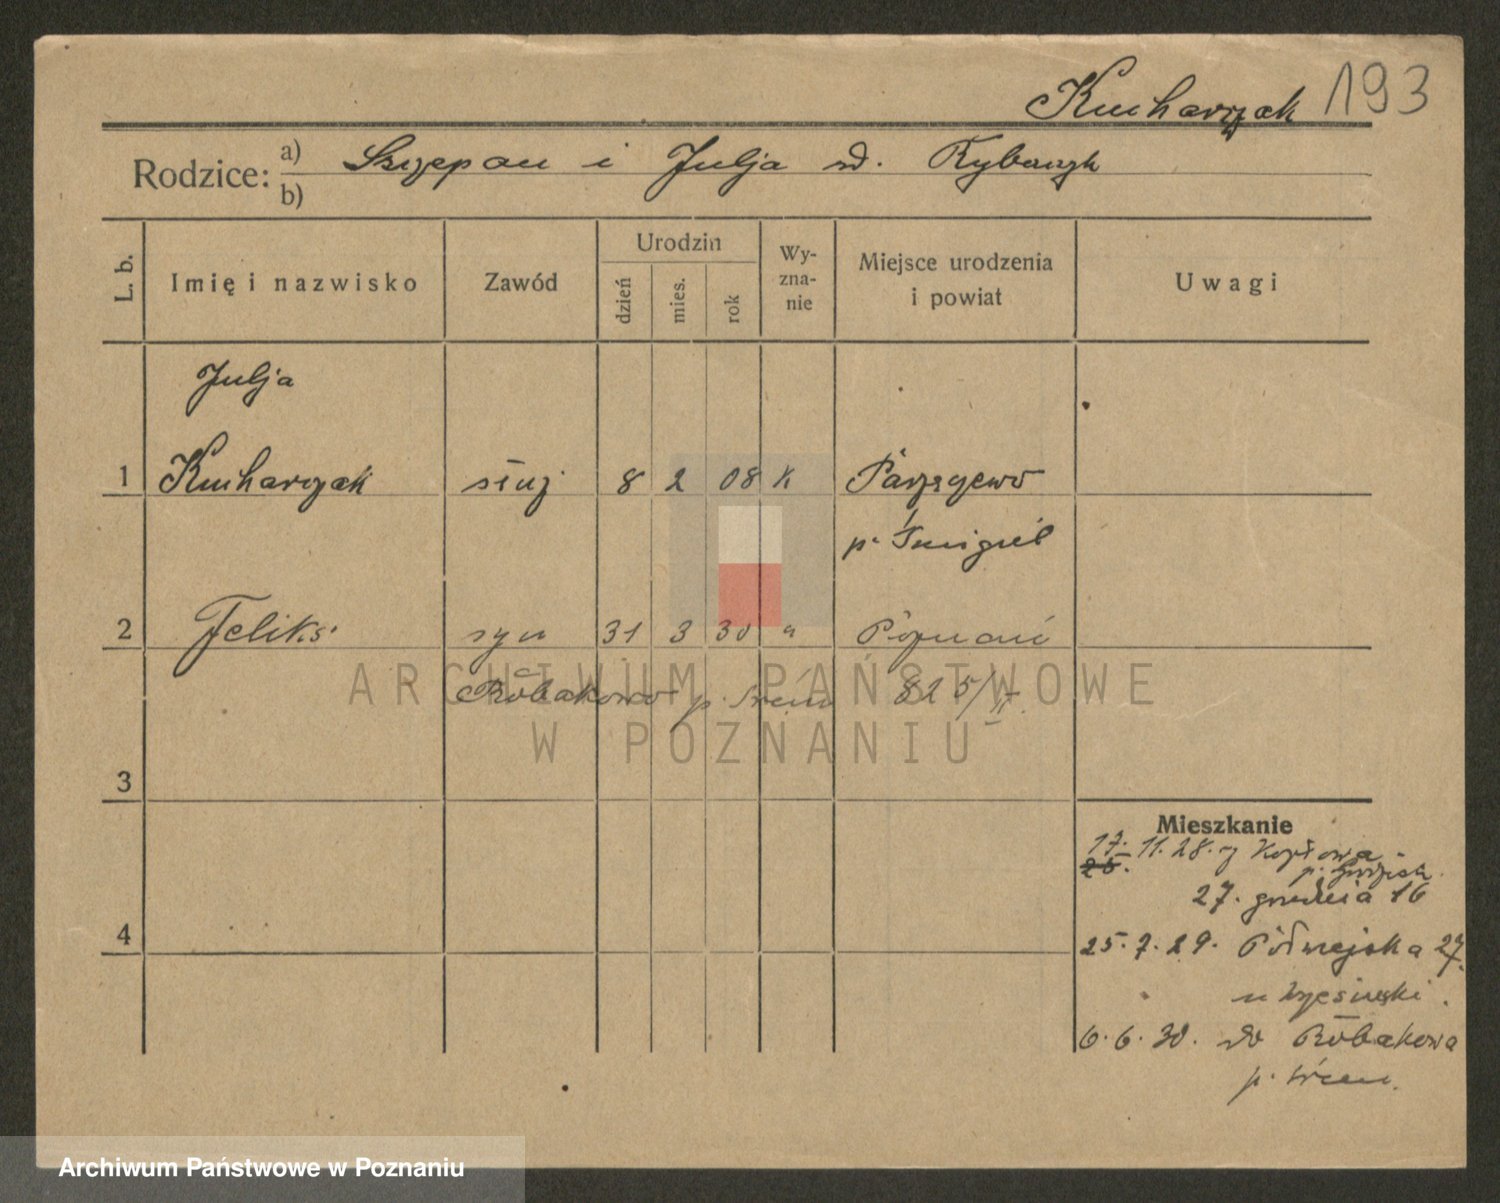 Kucharzak 193
Rodzice: a) b) Szczepan i Julja zd. Rybarzyk
L. b. Imię i nazwisko Zawód Urodzin dzień mies. rok Wyznanie Miejsce urodzenia i powiat Uwagi
Julja
1 Kucharzak służ 8 2 08 k Parzęczewo
p. Śmigiel
2 Feliks syn 31 3 30 " Poznań
Róbakowo p. Śrem 825/II
3
Mieszkanie
17. 11. 28. z
25.
27. grudnia 16
4
25. 7. 29. Półwiejska 27
u Wzesiński.
6. 6. 30. do Róbakowa
p. Śrem.
ARCHIWUM PAŃSTWOWE
W POZNANIU
Archiwum Państwowe w Poznaniu